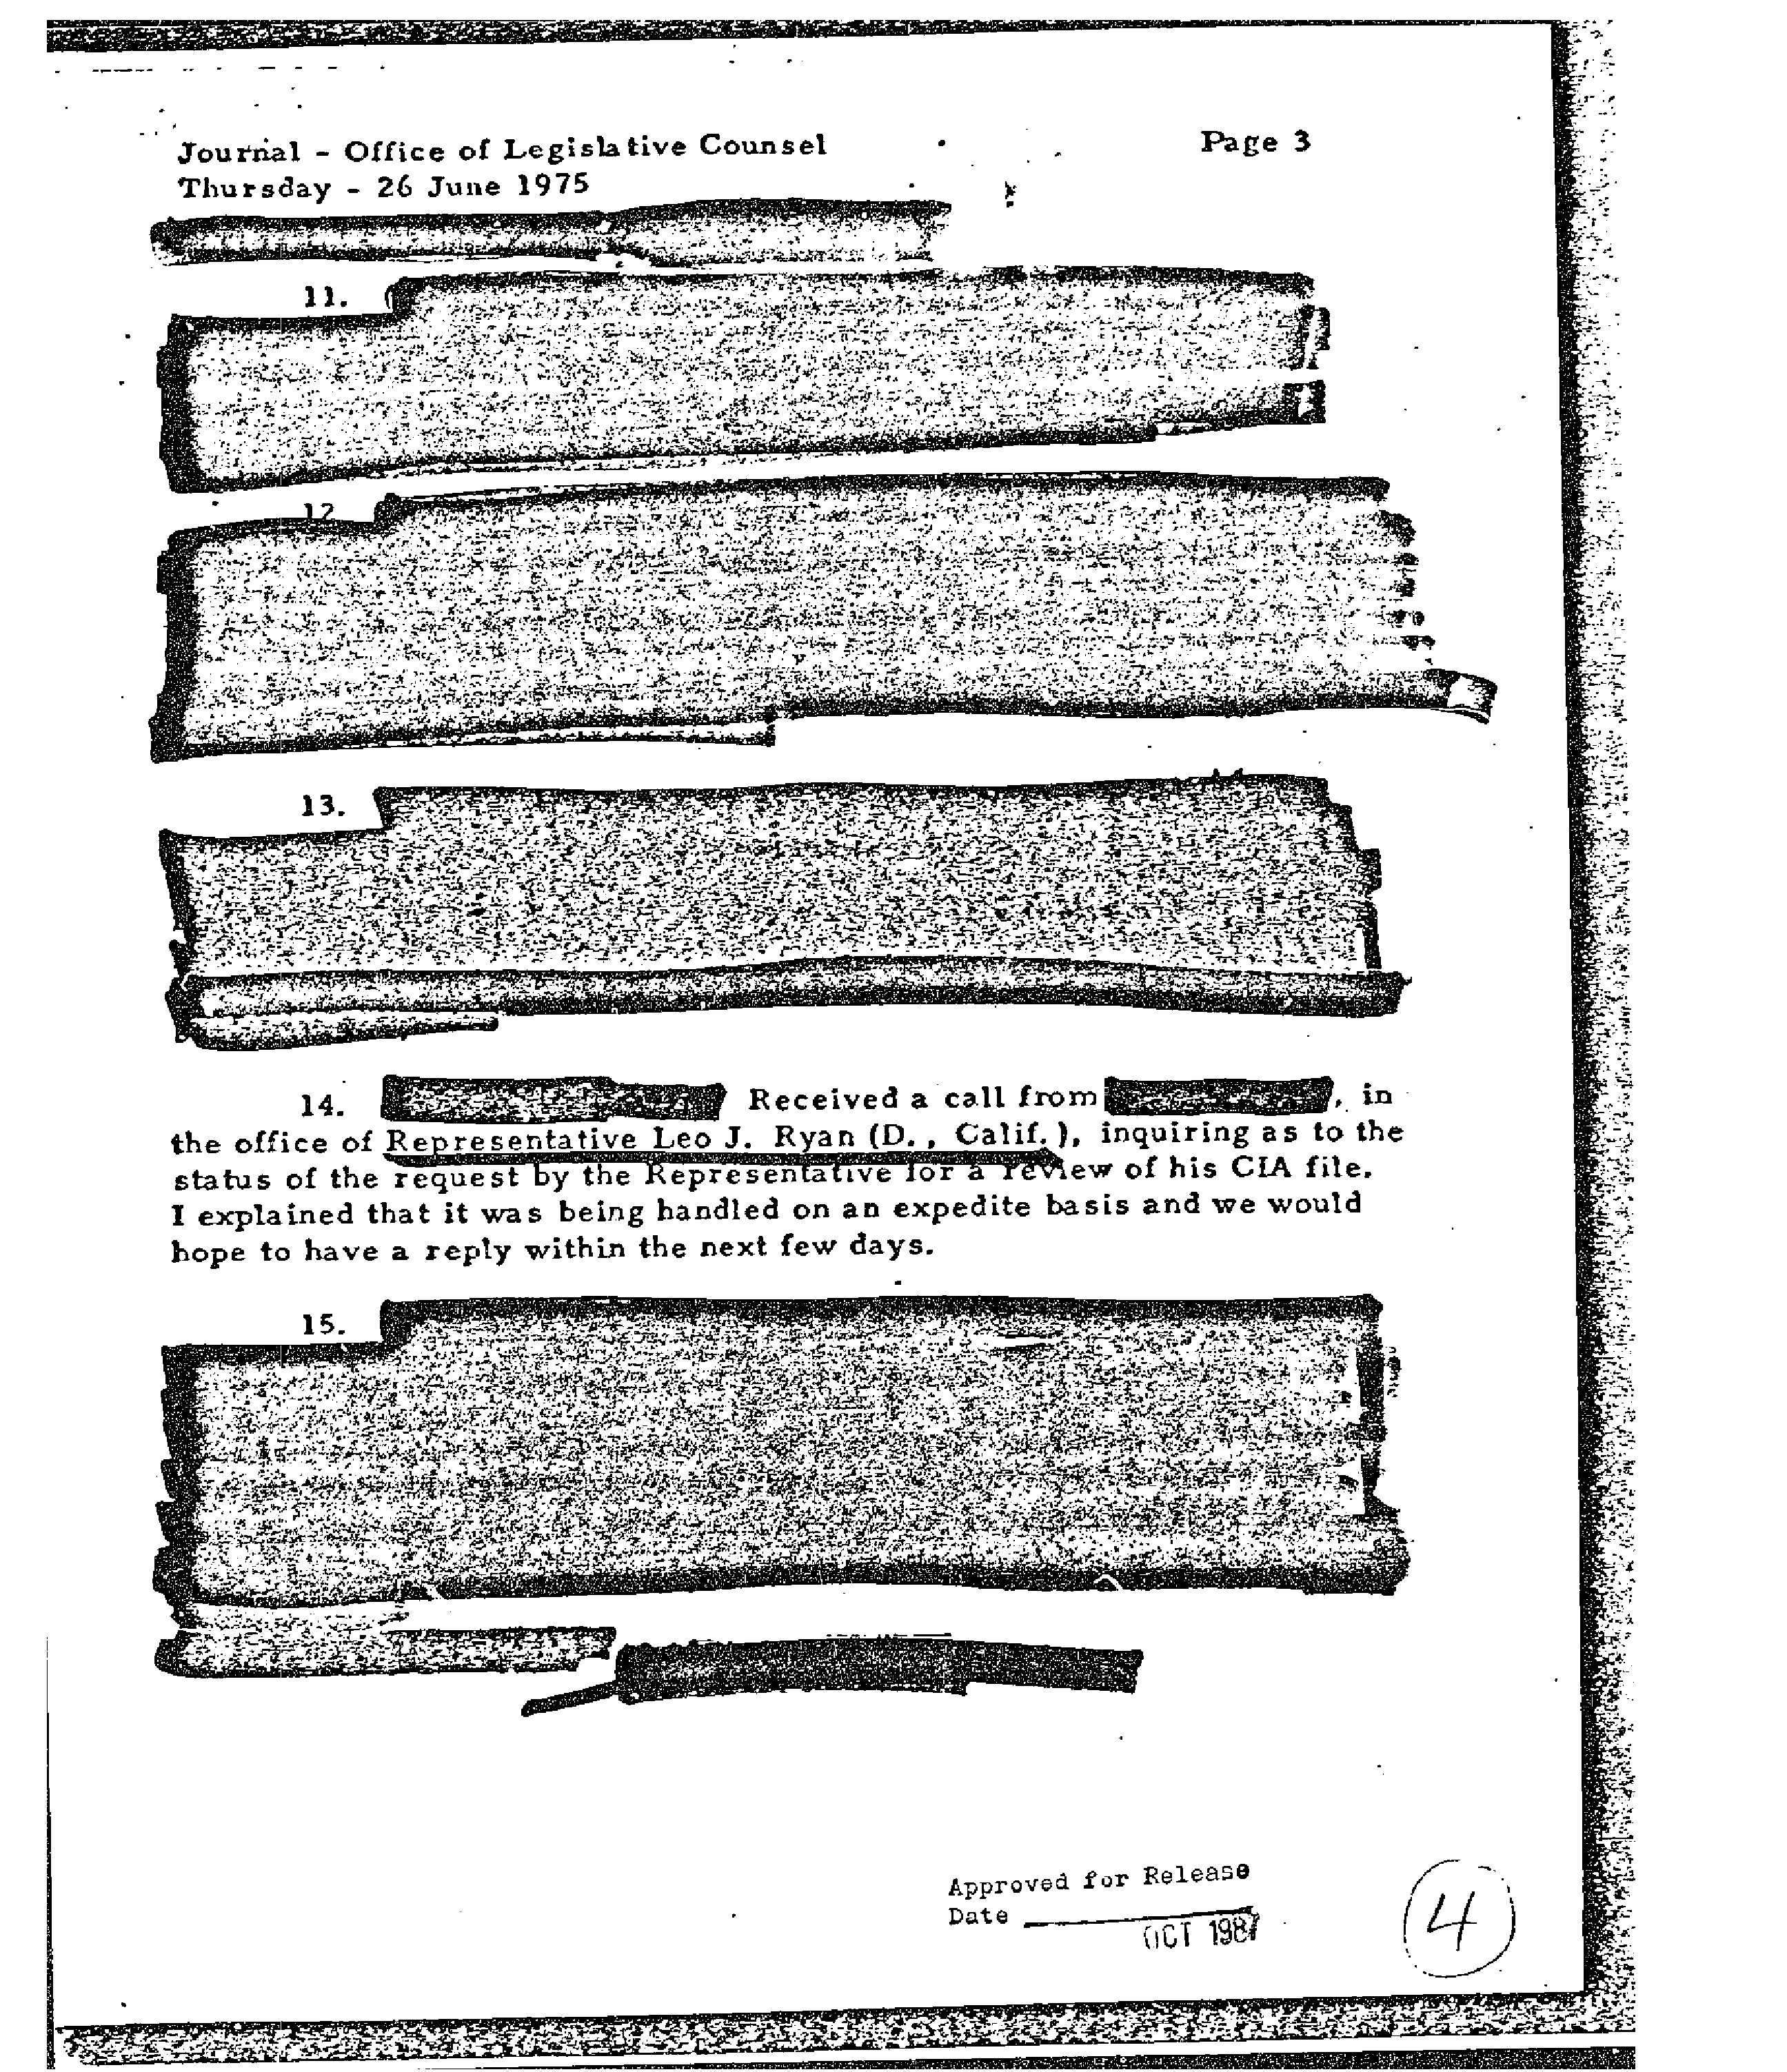 Journal - Office of Legislative Counsel Page 3
Thursday - 26 June 1975
11.
12
13.
14. Received a call from , in
the office of Representative Leo J. Ryan (D., Calif.), inquiring as to the
status of the request by the Representative for a review of his CIA file.
I explained that it was being handled on an expedite basis and we would
hope to have a reply within the next few days.
15.
Approved for Release
Date
OCT 1987
4